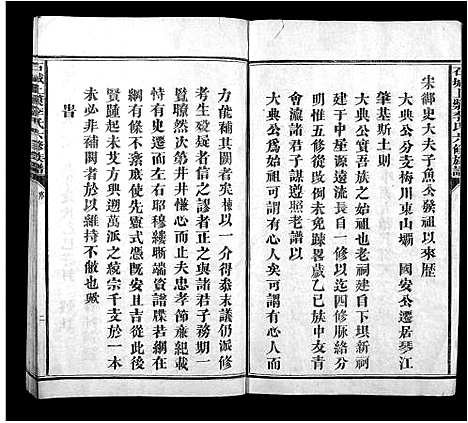 石城上㵢李氏六修族譜
宋鄉史大夫子魚公發祖以來歷
大典公分支梅川東山壩 國安公遷居琴江
肇基斯土則
大典公實吾族之始祖也老祠建自下坝新祠
建于中屋源遠流長自一修以迄四修脉絡分
明惟五修未免疎畧歲乙巳族中友青
會瀛諸君子謀遵照老譜以
大典公爲始祖可謂有心人矣可謂有心人而
力能補其闕者矣棟以一介得忝末議仍派修
考生殁葬者信之謬者正之與諸君子務期一
目瞭然次第井井慊心而止夫忠孝節廉紀載
恒有史遷而左右耶穆纓聯端資譜牒若綱在
綱有條不紊庶使先靈式憑既安且吉從此後
賢踵起未艾方興遡萬派之繞宗千支於一本
未必非補闕者於以維持不敝也歟
旹
二